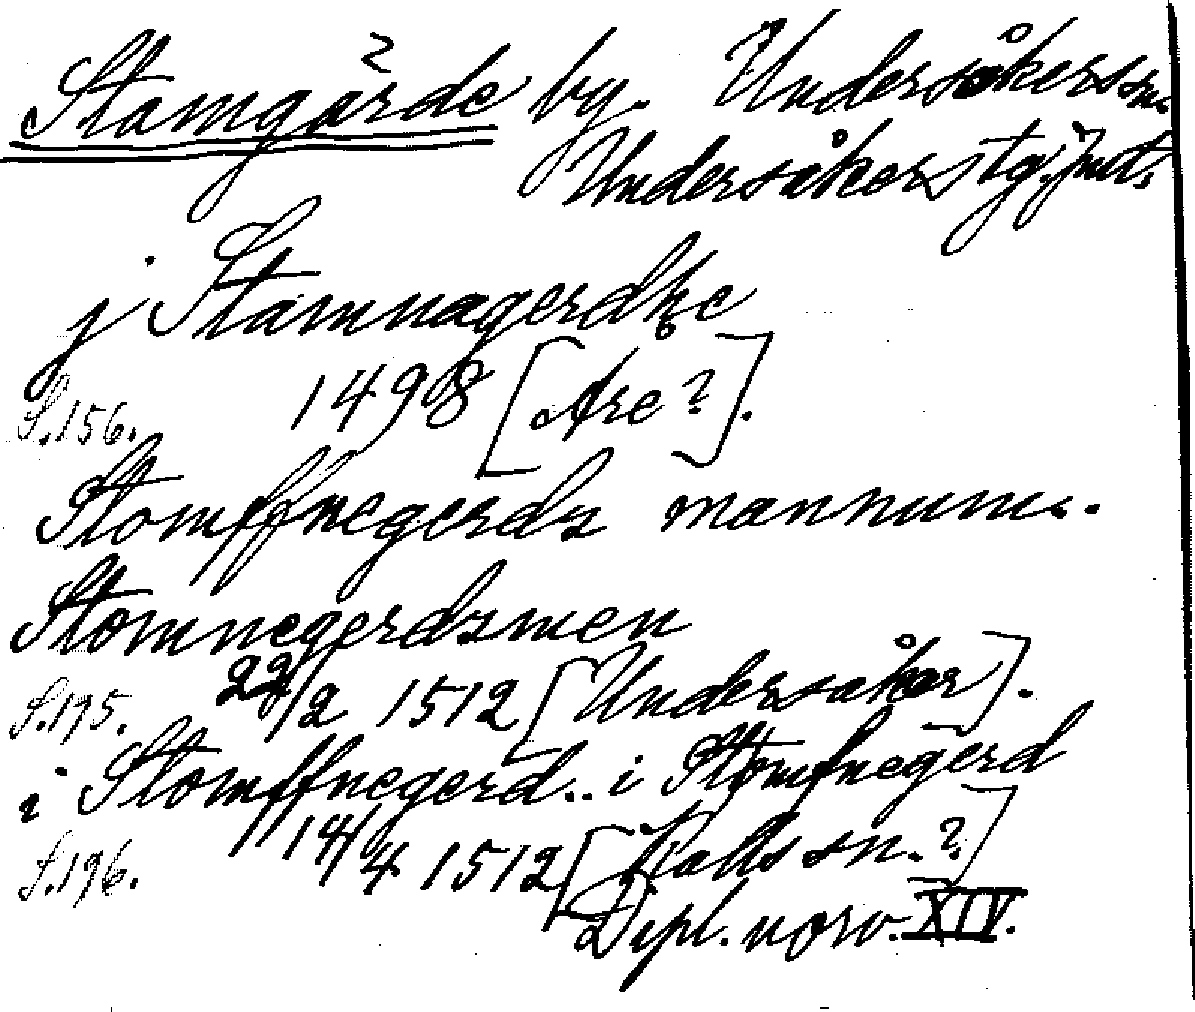 Stamgärde by. Undersåkers sn.
Undersåkers tg. Jmtl.
j Stamnagerdhe
S.156. 1498 [Åre ?].
Stomffnegerdz mannum..
Stomnegerdzmen
S.195. 22/2 1512 [Undersåker].
i Stomffnegerd.. i Stomfnegerd
S.196. 14/4 1512 [Kalls sn. ?]
Dipl. norv. XIV.